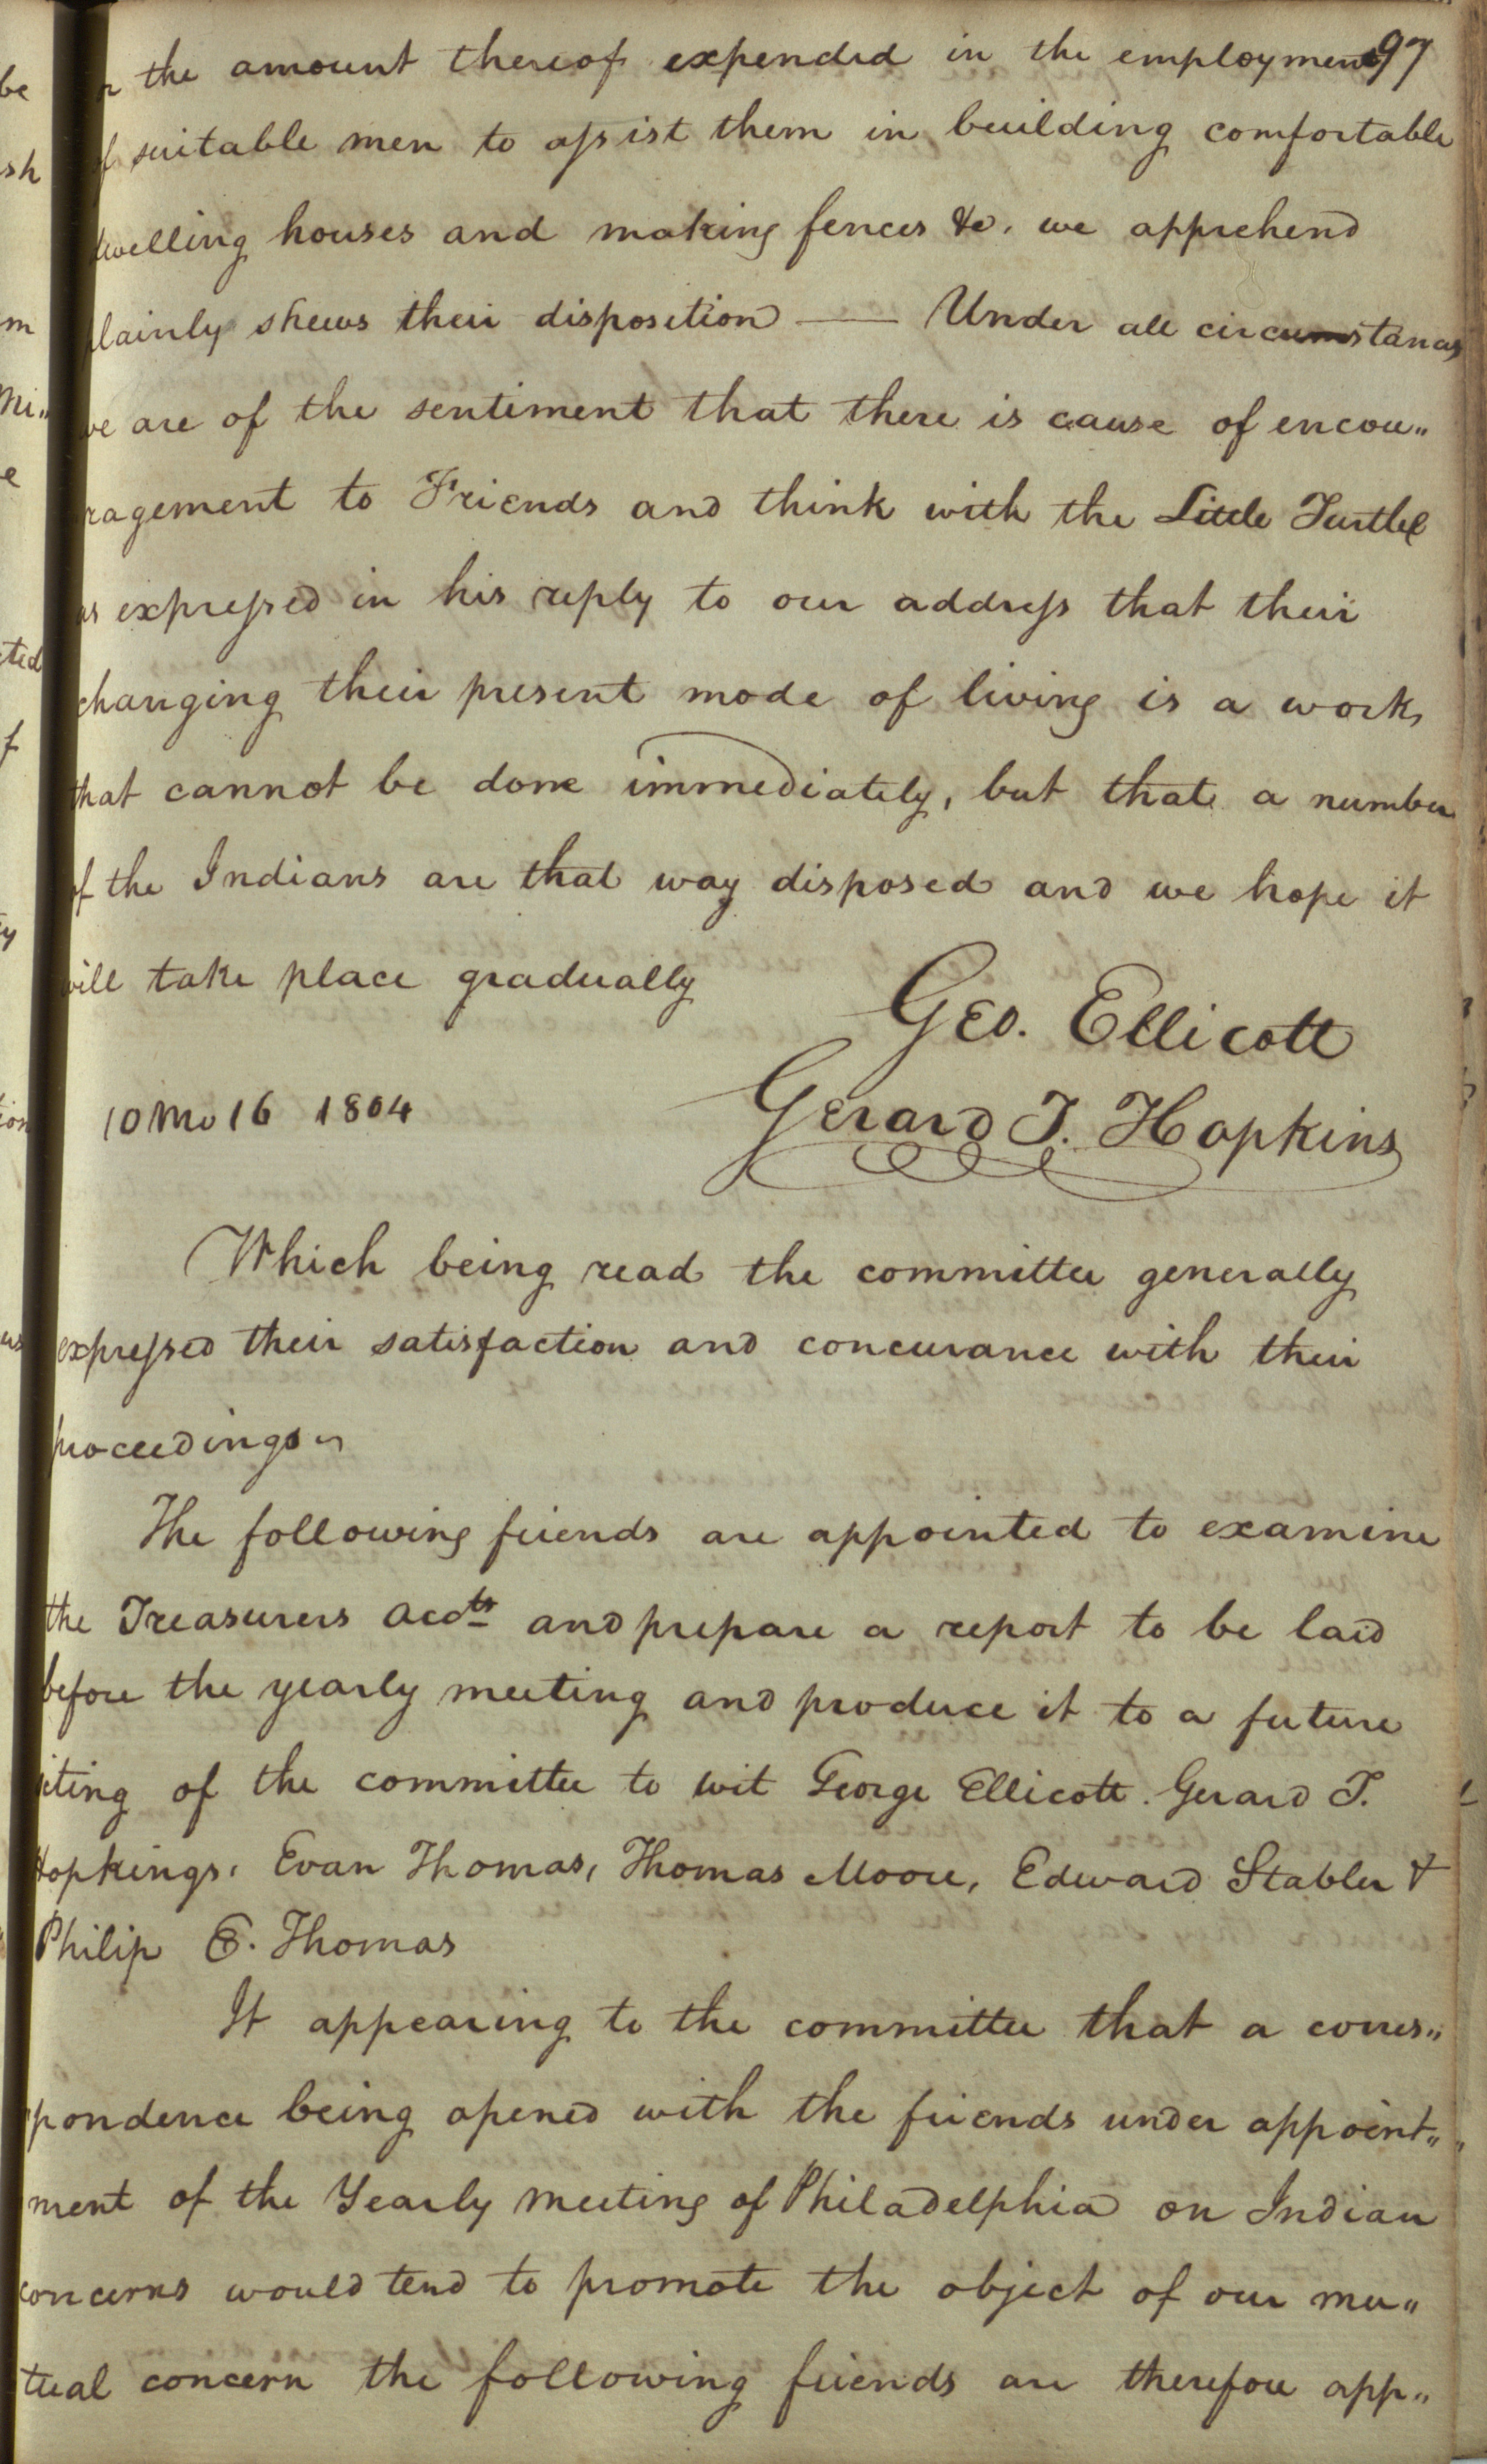 97
or the amount thereof expended in the employment
of suitable men to assist them in building comfortable
dwelling houses and making fences &c. we apprehend
plainly shews their disposition — Under all circumstances
we are of the sentiment that there is cause of encou„
ragement to Friends and think with the Little Turtle
as expressed in his reply to our address that their
changing their present mode of living is a work
that cannot be done immediately, but that a number
of the Indians are that way disposed and we hope it
will take place gradually
Geo. Ellicott
10 Mo 16 1804
Gerard T. Hopkins
Which being read the committee generally
expressed their satisfaction and concurance with their
proceedings
The following friends are appointed to examine
the Treasurers Accts and prepare a report to be laid
before the yearly meeting and produce it to a future
siting of the committee to wit George Ellicott. Gerard T.
Hopkings, Evan Thomas, Thomas Moore, Edward Stabler &
Philip E. Thomas
It appearing to the committee that a corres„
pondence being opened with the friends under appoint„
ment of the Yearly meeting of Philadelphia on Indian
concerns would tend to promote the object of our mu„
tual concern the following friends are therefore app„